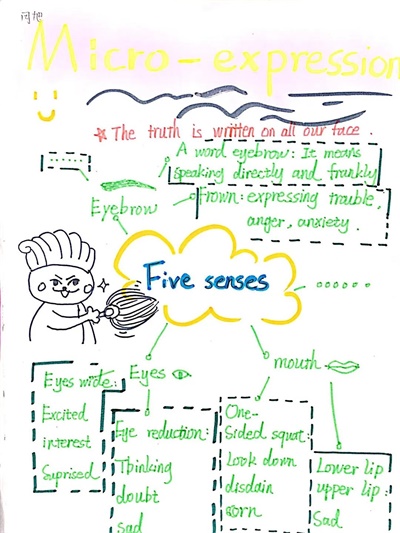 Micro-expression
The truth is written on all our face.
A word eyebrow: It means
speaking directly and frankly
Eyebrow
Frown: expressing trouble,
anger, anxiety.
Five senses
Eyes
mouth
Eyes wide:
Excited
interest
Suprised
Eye reduction:
Thinking
doubt
sad
One-
Sided squat:
Look down
disdain
Lower lip
upper lip:
Sad